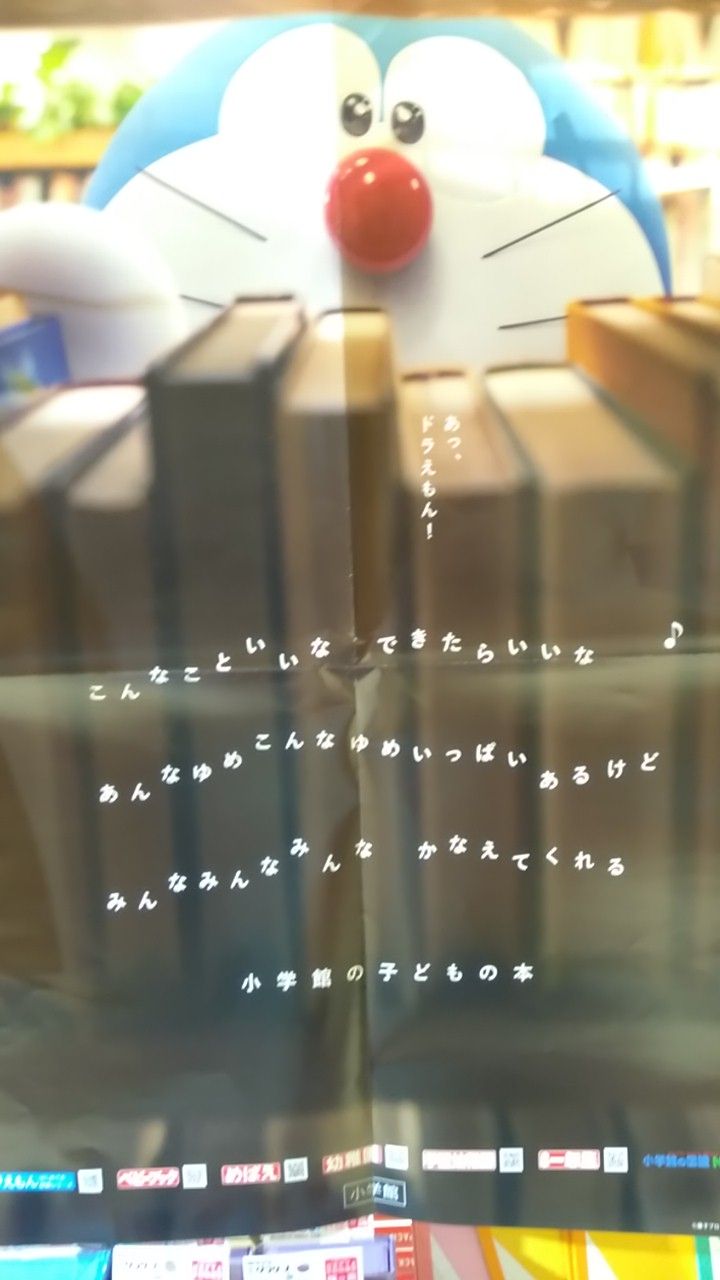 あっ、
ドラえもん！
♪
こんなこといいな できたらいいな
あんなゆめこんなゆめいっぱいあるけど
みんなみんなみんな かなえてくれる
小学館の子どもの本
えもん
ベビーブック
めばえ
幼稚園
小学館の図鑑
小学館